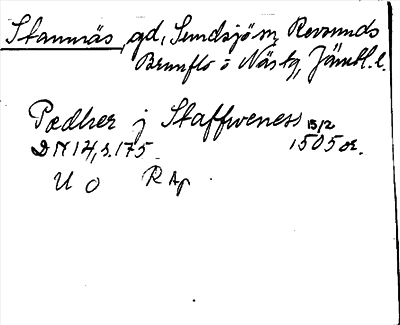 Stamnäs, gd, Sundsjö sn, Revsunds
Brunflo o Näs tg, Jämtl. l.
Pædher j Staffweness 13/2
DN 14, s. 175 1505 or.
U O R Ap